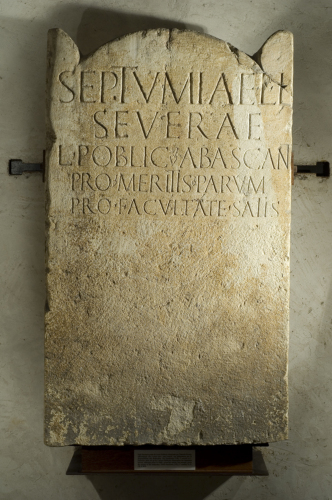 SEPTVMIAE L L
SEVERAE
L POBLIC ABASCAN
PRO MERITIS PARVM
PRO FACVLTATE SATIS